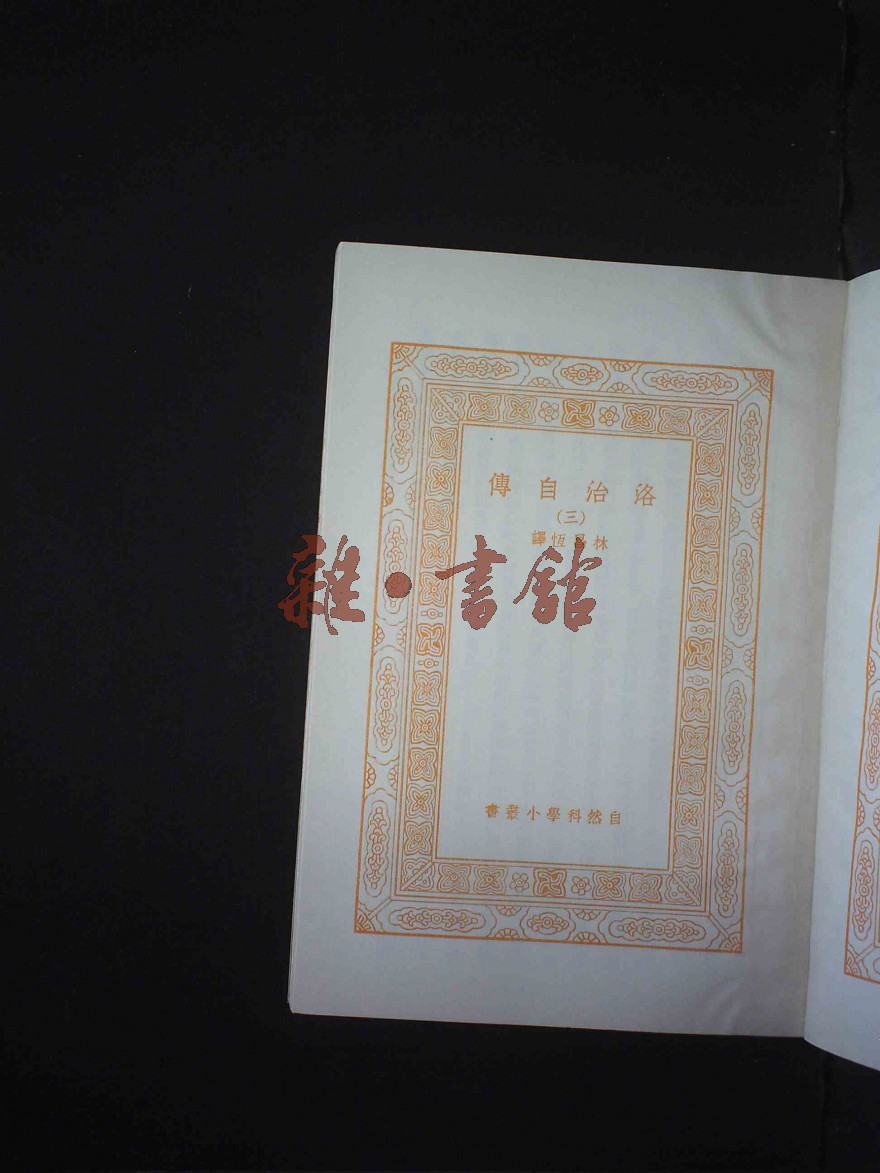 洛治自傳
(三)
林昌恆譯
雜·書館
自然科學小叢書